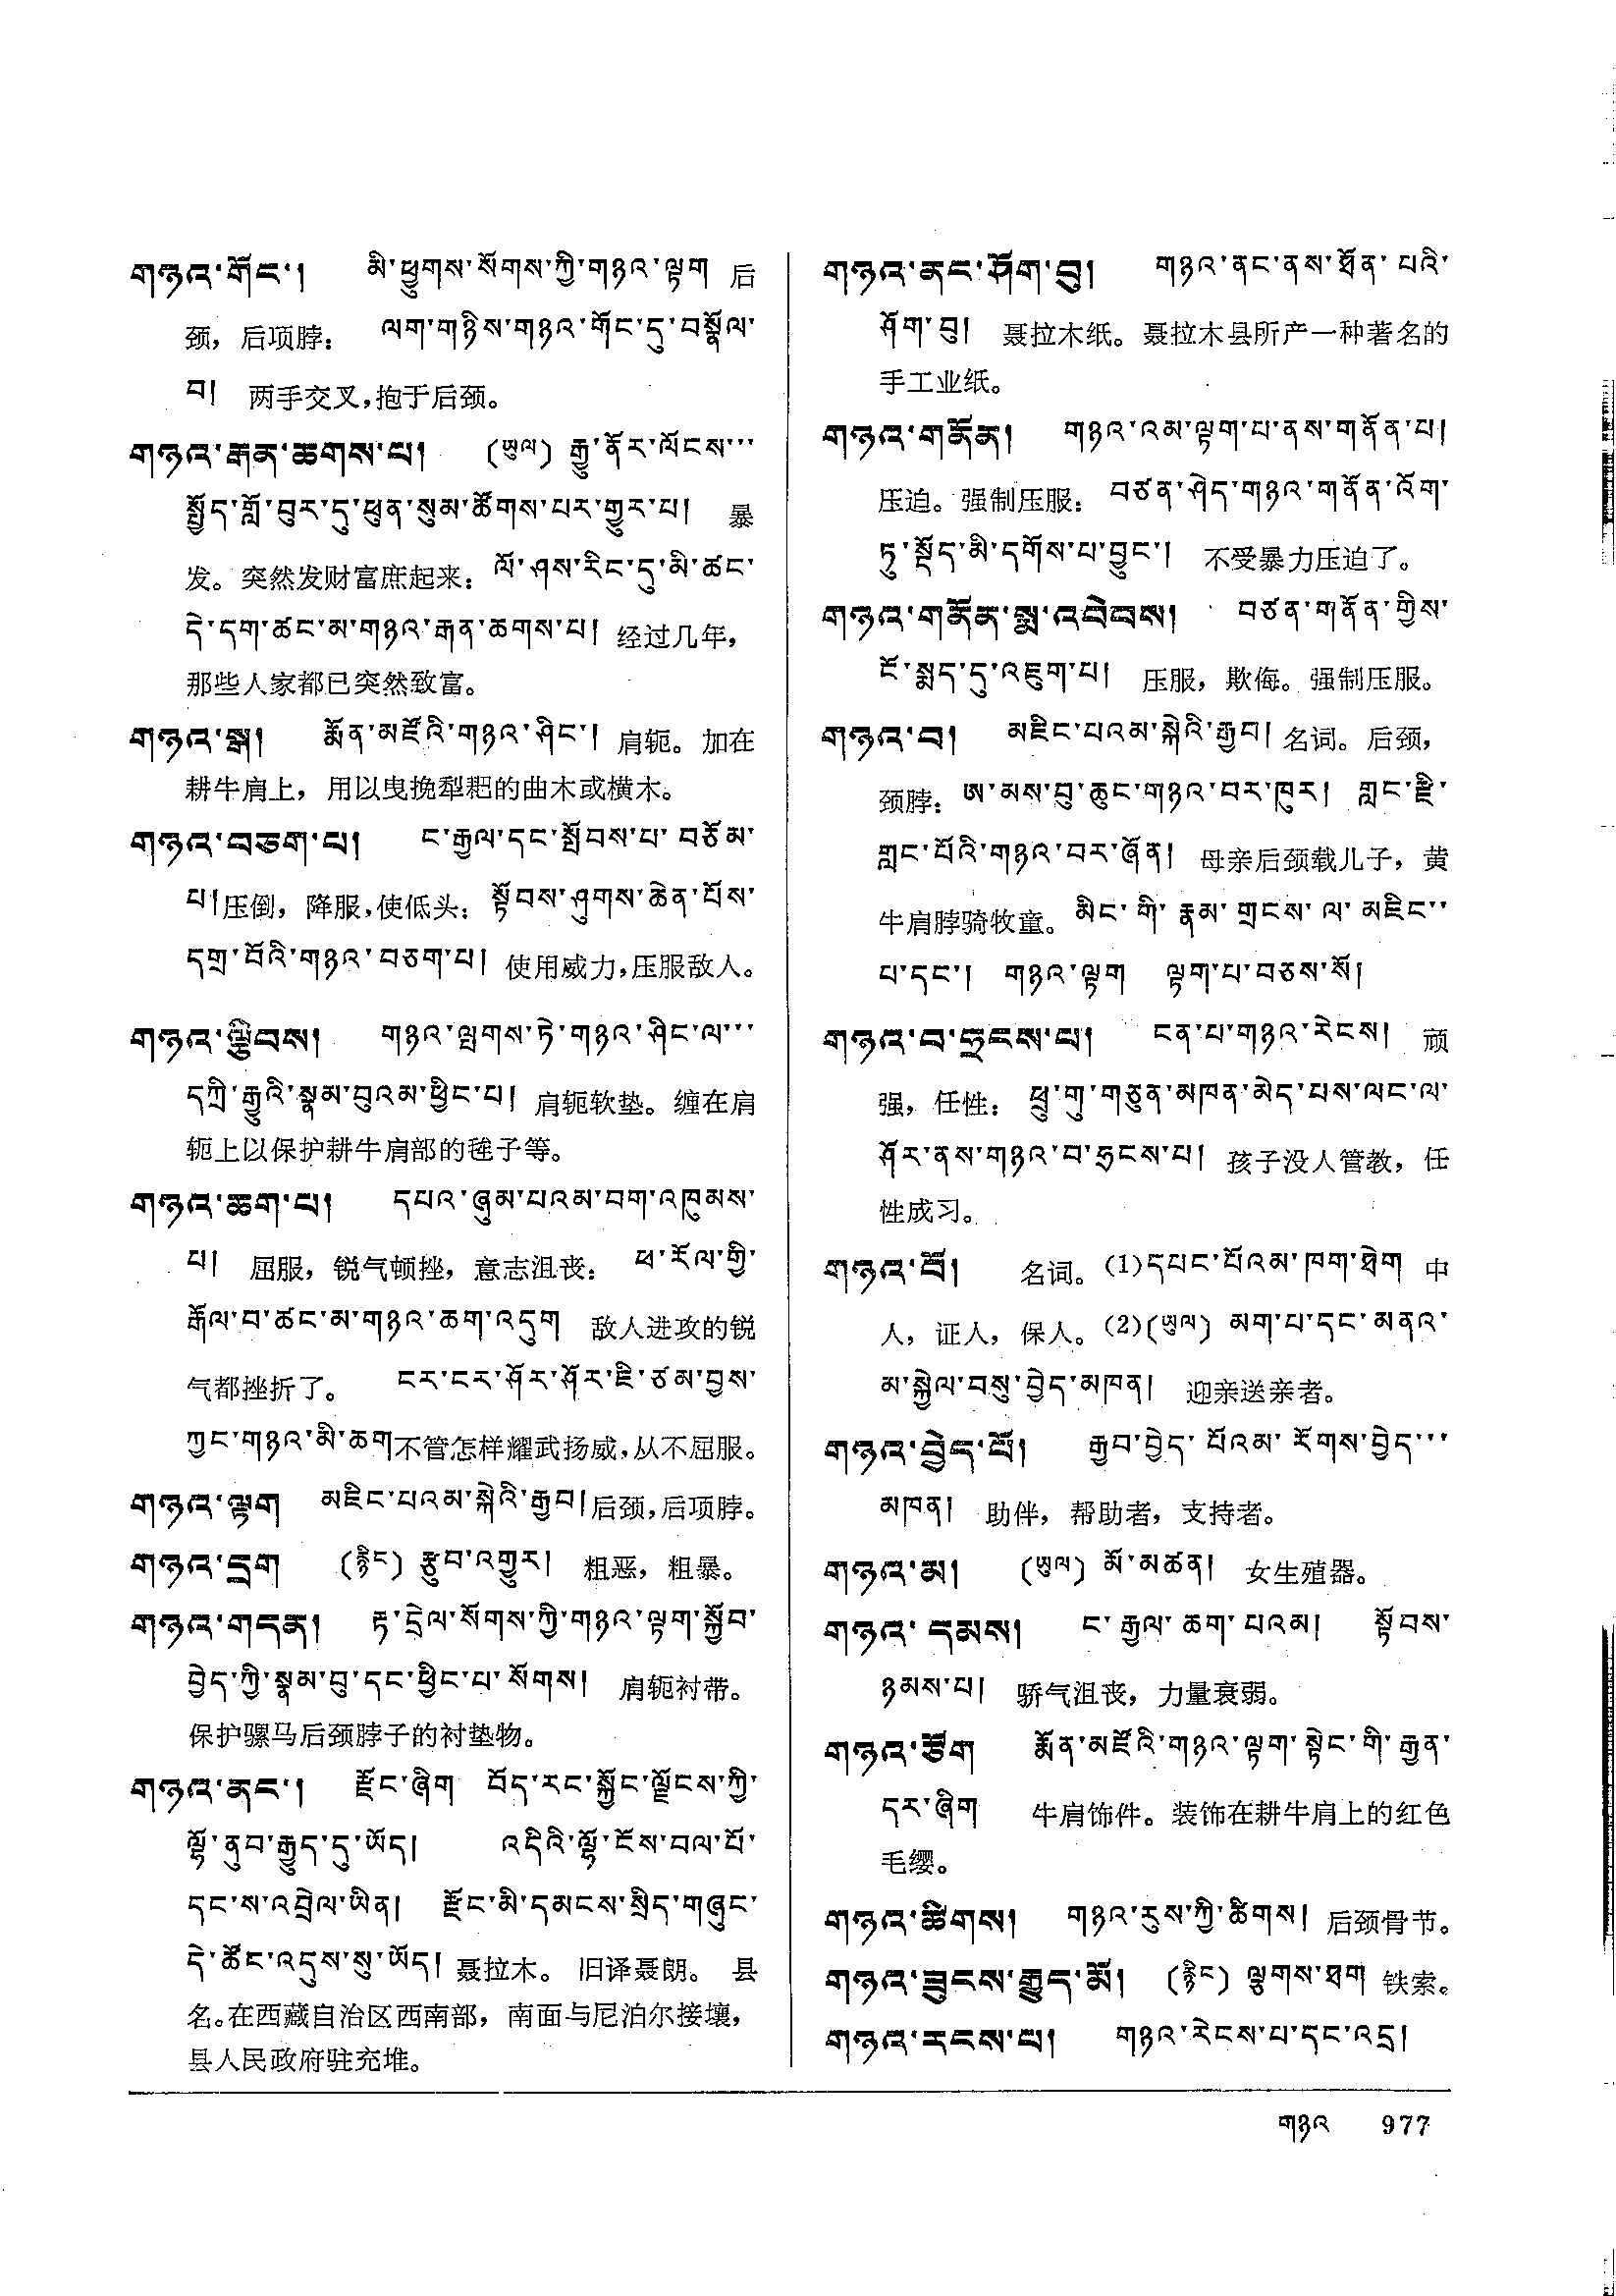 གཉའ་གོང་། མི་ཕྱུགས་སོགས་ཀྱི་གཉའ་ལྟག 后
颈，后项脖： ལག་གཉིས་གཉའ་གོང་དུ་བསྣོལ་
བ། 两手交叉,抱于后颈。
གཉའ་རྒན་ཆགས་པ། (ཡུལ) རྒྱུ་ནོར་ལོངས་་་
སྤྱོད་གློ་བུར་དུ་ཕུན་སུམ་ཚོགས་པར་གྱུར་པ། 暴
发。突然发财富庶起来： ལོ་ཤས་རིང་དུ་མི་ཚང་
དེ་དག་ཚང་མ་གཉའ་རྒན་ཆགས་པ། 经过几年，
那些人家都已突然致富。
གཉའ་སྒ། རྨོན་མཛོའི་གཉའ་ཤིང་། 肩轭。加在
耕牛肩上，用以曳挽犁耙的曲木或横木。
གཉའ་བཅག་པ། ང་རྒྱལ་དང་སྤོབས་པ་བཅོམ་
པ། 压倒，降服,使低头： སྟོབས་ཤུགས་ཆེན་པོས་
དགྲ་བོའི་གཉའ་བཅག་པ། 使用威力,压服敌人。
གཉའ་ལྕིབས། གཉའ་ལྤགས་ཏེ་གཉའ་ཤིང་ལ་་་
དཀྲི་རྒྱུའི་སྣམ་བུའམ་ཕྱིང་པ། 肩轭软垫。缠在肩
轭上以保护耕牛肩部的毪子等。
གཉའ་ཆག་པ། དཔའ་ཞུམ་པའམ་བག་འཁུམས་
པ། 屈服，锐气顿挫，意志沮丧： ཕ་རོལ་གྱི་
རྒོལ་བ་ཚང་མ་གཉའ་ཆག་འདུག 敌人进攻的锐
气都挫折了。 ངར་ངར་ཤོར་ཤོར་ཇི་ཙམ་བྱས་
ཀྱང་གཉའ་མི་ཆག 不管怎样耀武扬威,从不屈服。
གཉའ་ལྟག མཇིང་པའམ་སྐེའི་རྒྱབ། 后颈,后项脖。
གཉའ་དྲག (རྙིང) རྩུབ་འགྱུར། 粗恶，粗暴。
གཉའ་གདན། རྟ་དྲེལ་སོགས་ཀྱི་གཉའ་ལྟག་སྐྱོབ་
བྱེད་ཀྱི་སྣམ་བུ་དང་ཕྱིང་པ་སོགས། 肩轭衬带。
保护骡马后颈脖子的衬垫物。
གཉའ་ནང་། རྫོང་ཞིག བོད་རང་སྐྱོང་ལྗོངས་ཀྱི་
ལྷོ་ནུབ་རྒྱུད་དུ་ཡོད། འདིའི་ལྷོ་ངོས་བལ་པོ་
དང་ས་འབྲེལ་ཡིན། རྫོང་མི་དམངས་སྲིད་གཞུང་
དེ་ཚོང་འདུས་སུ་ཡོད། 聂拉木。旧译聂朗。县
名。在西藏自治区西南部，南面与尼泊尔接壤，
县人民政府驻充堆。
གཉའ་ནང་ཤོག་བུ། གཉའ་ནང་ནས་ཐོན་པའི་
ཤོག་བུ། 聂拉木纸。聂拉木县所产一种著名的
手工业纸。
གཉའ་གནོན། གཉའ་འམ་ལྟག་པ་ནས་གནོན་པ།
压迫。强制压服： བཙན་ཤེད་གཉའ་གནོན་འོག་
ཏུ་སྡོད་མི་དགོས་པ་བྱུང་། 不受暴力压迫了。
གཉའ་གནོན་སྨ་འབེབས། བཙན་གནོན་གྱིས་
ངོ་སྨད་དུ་འཇུག་པ། 压服，欺侮。强制压服。
གཉའ་བ། མཇིང་པའམ་སྐེའི་རྒྱབ། 名词。后颈，
颈脖： ཨ་མས་བུ་ཆུང་གཉའ་བར་ཁུར། གླང་རྫི་
གླང་པོའི་གཉའ་བར་ཞོན། 母亲后颈载儿子，黄
牛肩脖骑牧童。 མིང་གི་རྣམ་གྲངས་ལ་མཇིང་་
པ་དང་། གཉའ་ལྟག ལྟག་པ་བཅས་སོ།
གཉའ་བ་ཧྲངས་པ། ངན་པ་གཉའ་རེངས། 顽
强，任性： ཕྲུ་གུ་གཅུན་མཁན་མེད་པས་ལང་ལ་
ཤོར་ནས་གཉའ་བ་ཧྲངས་པ། 孩子没人管教，任
性成习。
གཉའ་བོ། 名词。(1)དཔང་པོའམ་ཁག་ཐེག 中
人，证人，保人。(2)(ཡུལ) མག་པ་དང་མནའ་
མ་སྐྱེལ་བསུ་བྱེད་མཁན། 迎亲送亲者。
གཉའ་བྱེད་པོ། རྒྱབ་བྱེད་པོའམ་རོགས་བྱེད་་་
མཁན། 助伴，帮助者，支持者。
གཉའ་མ། (ཡུལ) མོ་མཚན། 女生殖器。
གཉའ་དམས། ང་རྒྱལ་ཆག་པའམ། སྟོབས་
ཉམས་པ། 骄气沮丧，力量衰弱。
གཉའ་ཙོག རྨོན་མཛོའི་གཉའ་ལྟག་སྟེང་གི་རྒྱན་
དར་ཞིག 牛肩饰件。装饰在耕牛肩上的红色
毛缨。
གཉའ་ཚིགས། གཉའ་རུས་ཀྱི་ཚིགས། 后颈骨节。
གཉའ་ཟུངས་རྒྱུད་མོ། (རྙིང) ལྕགས་ཐག 铁索。
གཉའ་རངས་པ། གཉའ་རེངས་པ་དང་འདྲ།
གཉའ 977